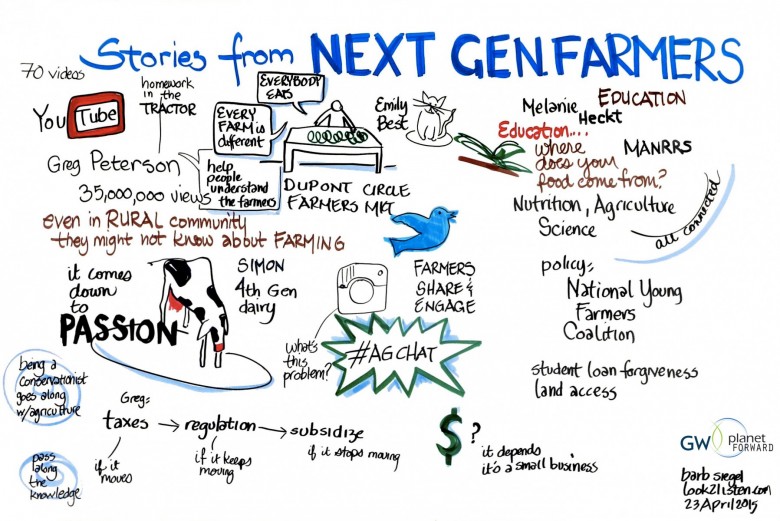 Stories from NEXT GEN. FARMERS
70 videos
You Tube
homework
in the
TRACTOR
EVERYBODY
EATS
EVERY
FARM is
different
Greg Peterson
help
people
understand
the farmers
35,000,000 views
DUPONT CIRCLE
FARMERS MKT
Emily
Best
even in RURAL community
they might not know about FARMING
Melanie
Heckt
EDUCATION
Education...
where
does your
food come from?
MANRRS
Nutrition, Agriculture
Science
all connected
it comes
down
to
PASSION
SIMON
4th Gen
dairy
FARMERS
SHARE &
ENGAGE
what's
this
problem?
#AGCHAT
policy:
National Young
Farmers
Coalition
student loan forgiveness
land access
being a
conservationist
goes along
w/agriculture
pass
along
the
knowledge
Greg:
taxes → regulation → subsidize
if it
moves
if it keeps
moving
if it stops moving
$?
it depends
it's a small business
GW planet
FORWARD
barb siegel
look2listen.com
23 April 2015